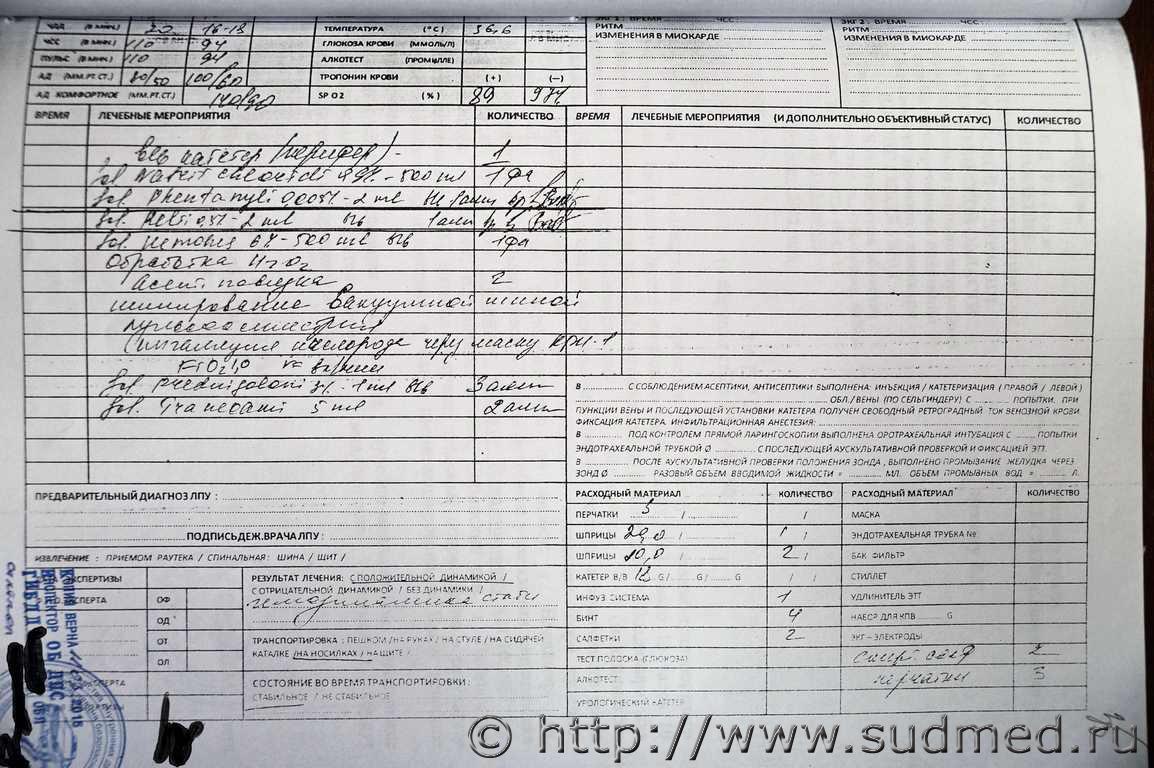 ЧДД (В МИН.) 20 16-18 ТЕМПЕРАТУРА (°С) 36,6
РИТМ
РИТМ
ЧСС (В МИН.) 110 94 ГЛЮКОЗА КРОВИ (ММОЛЬ/Л)
ИЗМЕНЕНИЯ В МИОКАРДЕ
ИЗМЕНЕНИЯ В МИОКАРДЕ
ПУЛЬС (В МИН.) 110 94 АЛКОТЕСТ (ПРОМИЛЛЕ)
АД (ММ.РТ.СТ.) 80/50 100/60 ТРОПОНИН КРОВИ (+) (—)
АД КОМФОРТНОЕ (ММ.РТ.СТ.) 140/90 SP O2 (%) 89 97%
ВРЕМЯ ЛЕЧЕБНЫЕ МЕРОПРИЯТИЯ КОЛИЧЕСТВО ВРЕМЯ ЛЕЧЕБНЫЕ МЕРОПРИЯТИЯ (И ДОПОЛНИТЕЛЬНО ОБЪЕКТИВНЫЙ СТАТУС) КОЛИЧЕСТВО
в/в катетер (перифер) - 1
Sol. Natrii chloridi 0,9% - 500 ml 1 фл
Sol. Phentanyli 0,005% - 2 ml
2 ml в/в 1 амп
6% - 500 ml в/в 1 фл
Обработка H2O2
Асепт. повязка 2
шинирование вакуумной шиной
Ингаляция кислорода через маску КРИ-1
FiO2 1,0
Sol. Prednisoloni 3% - 1 ml в/в 3 амп
Sol. Tranexami 5 ml 2 амп
В ............ С СОБЛЮДЕНИЕМ АСЕПТИКИ, АНТИСЕПТИКИ ВЫПОЛНЕНА: ИНЪЕКЦИЯ / КАТЕТЕРИЗАЦИЯ ( ПРАВОЙ / ЛЕВОЙ )
ОБЛ./ ВЕНЫ (ПО СЕЛЬГИНДЕРУ) С ............ ПОПЫТКИ. ПРИ
ПУНКЦИИ ВЕНЫ И ПОСЛЕДУЮЩЕЙ УСТАНОВКИ КАТЕТЕРА ПОЛУЧЕН СВОБОДНЫЙ РЕТРОГРАДНЫЙ ТОК ВЕНОЗНОЙ КРОВИ.
ФИКСАЦИЯ КАТЕТЕРА. ИНФИЛЬТРАЦИОННАЯ АНЕСТЕЗИЯ:
В ............ ПОД КОНТРОЛЕМ ПРЯМОЙ ЛАРИНГОСКОПИИ ВЫПОЛНЕНА ОРОТРАХЕАЛЬНАЯ ИНТУБАЦИЯ С ...... ПОПЫТКИ
ЭНДОТРАХЕАЛЬНОЙ ТРУБКОЙ Ø ............ С ПОСЛЕДУЮЩЕЙ АУСКУЛЬТАТИВНОЙ ПРОВЕРКОЙ И ФИКСАЦИЕЙ ЭТТ.
В ............ ПОСЛЕ АУСКУЛЬТАТИВНОЙ ПРОВЕРКИ ПОЛОЖЕНИЯ ЗОНДА , ВЫПОЛНЕНО ПРОМЫВАНИЕ ЖЕЛУДКА ЧЕРЕЗ
ЗОНД Ø ............ РАЗОВЫЙ ОБЪЕМ ВВОДИМОЙ ЖИДКОСТИ = ............ МЛ. ОБЪЕМ ПРОМЫВНЫХ ВОД = ............ Л.
ПРЕДВАРИТЕЛЬНЫЙ ДИАГНОЗ ЛПУ :
ПОДПИСЬ ДЕЖ. ВРАЧА ЛПУ :
ИЗВЛЕЧЕНИЕ : ПРИЕМОМ РАУТЕКА / СПИНАЛЬНАЯ: ШИНА / ЩИТ /
РАСХОДНЫЙ МАТЕРИАЛ КОЛИЧЕСТВО РАСХОДНЫЙ МАТЕРИАЛ КОЛИЧЕСТВО
ПЕРЧАТКИ / / МАСКА
ШПРИЦЫ 20,0 / 1 / ЭНДОТРАХЕАЛЬНАЯ ТРУБКА №
ШПРИЦЫ 10,0 / 2 / БАК. ФИЛЬТР
КАТЕТЕР В/В 18 G / G / G / / СТИЛЛЕТ
ИНФУЗ. СИСТЕМА 1 УДЛИНИТЕЛЬ ЭТТ
БИНТ 4 НАБОР ДЛЯ КПВ G
САЛФЕТКИ 2 ЭКГ – ЭЛЕКТРОДЫ
ТЕСТ ПОЛОСКА (ГЛЮКОЗА) Спирт. салф 2
АЛКОТЕСТ перчатки 3
УРОЛОГИЧЕСКИЙ КАТЕТЕР
ЭКСПЕРТИЗЫ
ОФ
ОД
ОТ
ОЛ
РЕЗУЛЬТАТ ЛЕЧЕНИЯ: С ПОЛОЖИТЕЛЬНОЙ ДИНАМИКОЙ /
С ОТРИЦАТЕЛЬНОЙ ДИНАМИКОЙ / БЕЗ ДИНАМИКИ /
ТРАНСПОРТИРОВКА : ПЕШКОМ / НА РУКАХ / НА СТУЛЕ / НА СИДЯЧЕЙ
КАТАЛКЕ / НА НОСИЛКАХ / НА ЩИТЕ /
СОСТОЯНИЕ ВО ВРЕМЯ ТРАНСПОРТИРОВКИ :
СТАБИЛЬНОЕ / НЕ СТАБИЛЬНОЕ
КОПИЯ ВЕРНА
ИНСПЕКТОР
© http://www.sudmed.ru